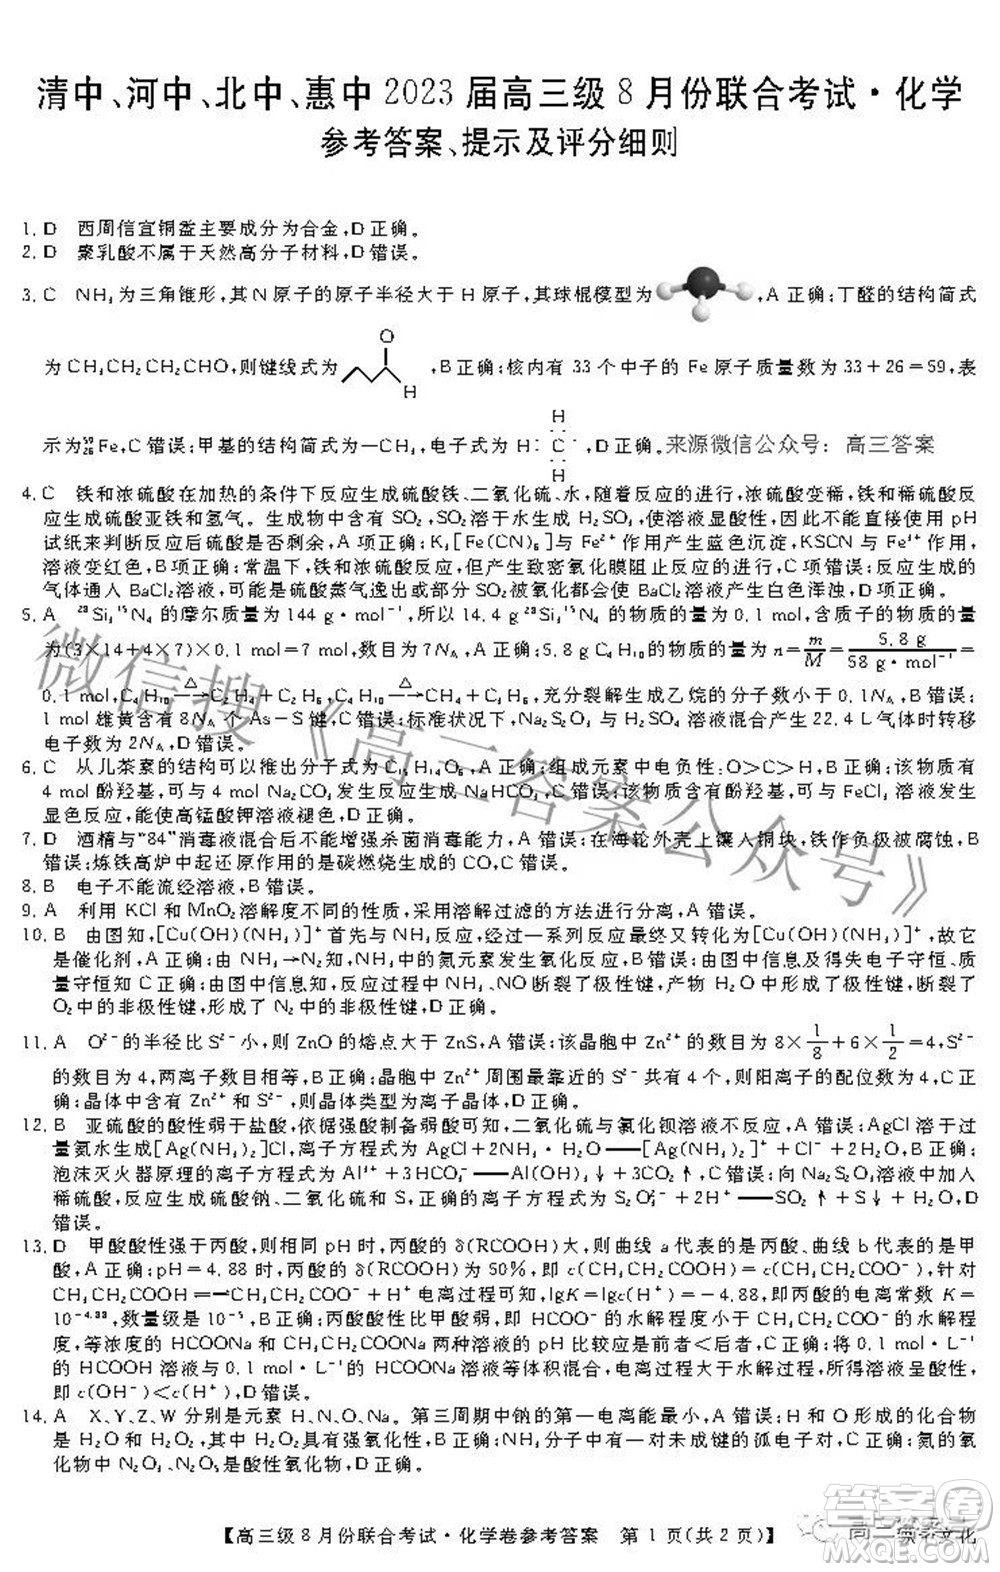 清中、河中、北中、惠中 2023 届高三级 8 月份联合考试·化学
参考答案、提示及评分细则
1. D 西周信宜铜盉主要成分为合金,D 正确。
2. D 聚乳酸不属于天然高分子材料,D 错误。
3. C NH₃ 为三角锥形,其 N 原子的原子半径大于 H 原子,其球棍模型为 ,A 正确;丁醛的结构简式
为 CH₃CH₂CH₂CHO,则键线式为 O H ,B 正确;核内有 33 个中子的 Fe 原子质量数为 33+26=59,表
示为 ⁵⁹₂₆Fe,C 错误;甲基的结构简式为—CH₃,电子式为 H:C· H H ,D 正确。 来源微信公众号:高三答案
4. C 铁和浓硫酸在加热的条件下反应生成硫酸铁、二氧化硫、水,随着反应的进行,浓硫酸变稀,铁和稀硫酸反
应生成硫酸亚铁和氢气。生成物中含有 SO₂,SO₂ 溶于水生成 H₂SO₃,使溶液显酸性,因此不能直接使用 pH
试纸来判断反应后硫酸是否剩余,A 项正确;K₃[Fe(CN)₆]与 Fe²⁺ 作用产生蓝色沉淀,KSCN 与 Fe³⁺ 作用,
溶液变红色,B 项正确;常温下,铁和浓硫酸反应,但产生致密氧化膜阻碍反应的进行,C 项错误;反应生成的
气体通入 BaCl₂ 溶液,可能是硫酸蒸气逸出或部分 SO₂ 被氧化都会使 BaCl₂ 溶液产生白色浑浊,D 项正确。
5. A ²⁸Si₃¹⁵N₄ 的摩尔质量为 144 g·mol⁻¹,所以 14.4 g²⁸Si₃¹⁵N₄ 的物质的量为 0.1 mol,含质子的物质的量
为(3×14+4×7)×0.1 mol=7 mol,数目为 7N_A,A 正确;5.8 g C₄H₁₀的物质的量为 n=m/M=5.8 g/58 g·mol⁻¹=
0.1 mol,C₄H₁₀ —△→ C₂H₄+C₂H₆,C₄H₁₀ —△→ CH₄+C₃H₆,充分裂解生成乙烷的分子数小于 0.1N_A,B 错误;
1 mol 雄黄含有 8N_A 个 As—S 键,C 错误;标准状况下,Na₂S₂O₃ 与 KMnO₄ 溶液混合产生 22.4 L 气体时转移
电子数为 2N_A,D 错误。
6. C 从儿茶素的结构可以推出分子式为 C₁₅H₁₄O₆,A 正确;组成元素中电负性:O>C>H,B 正确;该物质有
4 mol 酚羟基,可与 4 mol Na₂CO₃ 发生反应生成 NaHCO₃,C 错误;该物质有酚羟基,可与 FeCl₃ 溶液发生
显色反应,能使高锰酸钾溶液褪色,D 正确。
7. D 酒精与“84”消毒液混合后不能增强杀菌消毒能力,A 错误;在海轮外壳上镶入铜块,铁作负极被腐蚀,B
错误;炼铁高炉中起还原作用的是碳燃烧生成的 CO,C 错误。
8. B 电子不能流经溶液,B 错误。
9. A 利用 KCl 和 MnO₂ 溶解度不同的性质,采用溶解过滤的方法进行分离,A 错误。
10. B 由图知,[Cu(OH)(NH₃)]⁺ 首先与 NH₃ 反应,经过一系列反应最终又转化为[Cu(OH)(NH₃)]⁺,故它
是催化剂,A 正确;由 NH₃→N₂ 知,NH₃ 中的氮元素发生氧化反应,B 错误;由图中信息及得失电子守恒、质
量守恒知 C 正确;由图中信息知,反应过程中 NH₃、NO 断裂了极性键,产物 H₂O 中形成了极性键,断裂了
O₂ 中的非极性键,形成了 N₂ 中的非极性键,D 正确。
11. A O²⁻ 的半径比 S²⁻ 小,则 ZnO 的熔点大于 ZnS,A 错误;该晶胞中 Zn²⁺ 的数目为 8×1/8+6×1/2=4,S²⁻
的数目为 4,两离子数目相等,B 正确;晶胞中 Zn²⁺ 周围最靠近的 S²⁻ 共有 4 个,则阳离子的配位数为 4,C 正
确;晶体中含有 Zn²⁺ 和 S²⁻,则晶体类型为离子晶体,D 正确。
12. B 亚硫酸的酸性弱于盐酸,依据强酸制备弱酸可知,二氧化硫与氯化钡溶液不反应,A 错误;AgCl 溶于过
量氨水生成[Ag(NH₃)₂]Cl,离子方程式为 AgCl+2NH₃·H₂O══[Ag(NH₃)₂]⁺+Cl⁻+2H₂O,B 正确;
泡沫灭火器原理的离子方程式为 Al³⁺+3HCO₃⁻══Al(OH)₃↓+3CO₂↑,C 错误;向 Na₂S₂O₃ 溶液中加入
稀硫酸,反应生成硫酸钠、二氧化硫和 S,正确的离子方程式为 S₂O₃²⁻+2H⁺══SO₂↑+S↓+H₂O,D
错误。
13. D 甲酸酸性强于丙酸,则相同 pH 时,丙酸的 δ(RCOOH)大,则曲线 a 代表的是丙酸、曲线 b 代表的是甲
酸,A 正确;pH=4.88 时,丙酸的 δ(RCOOH)为 50%,即 c(CH₃CH₂COOH)=c(CH₃CH₂COO⁻),针对
CH₃CH₂COOH⇌CH₃CH₂COO⁻+H⁺ 电离过程可知,lgK=lgc(H⁺)=−4.88,即丙酸的电离常数 K=
10⁻⁴·⁸⁸,数量级是 10⁻⁵,B 正确;甲酸酸性比丙酸酸性弱,即 HCOO⁻ 的水解程度小于 CH₃CH₂COO⁻ 的水解程
度,等浓度的 HCOONa 和 CH₃CH₂COONa 两种溶液的 pH 比较应是前者<后者,C 正确;将 0.1 mol·L⁻¹
的 HCOOH 溶液与 0.1 mol·L⁻¹的 HCOONa 溶液等体积混合,电离过程大于水解过程,所得溶液呈酸性,
即 c(OH⁻)<c(H⁺),D 错误。
14. A X、Y、Z、W 分别是元素 H、N、O、Na。第三周期中钠的第一电离能最小,A 错误;H 和 O 形成的化合物
是 H₂O 和 H₂O₂,其中 H₂O₂ 具有强氧化性,B 正确;NH₃ 分子中存在一对未成键的孤电子对,C 正确;氮的氧
化物中 N₂O₃、N₂O₅ 是酸性氧化物,D 正确。
【高三级 8 月份联合考试·化学卷参考答案 第 1 页(共 2 页)】
微信搜《高三答案公众号》
答案圈
MXQE.COM